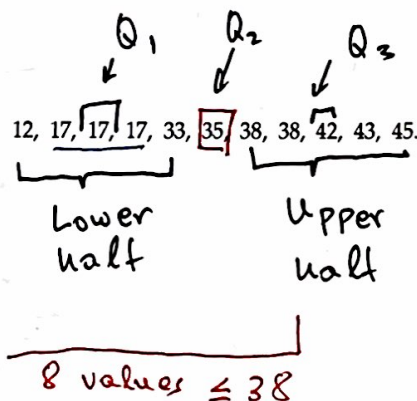 Q₁ Q₂ Q₃
12, 17, 17, 17, 33, 35, 38, 38, 42, 43, 45.
Lower Upper
half half
8 values ≤ 38